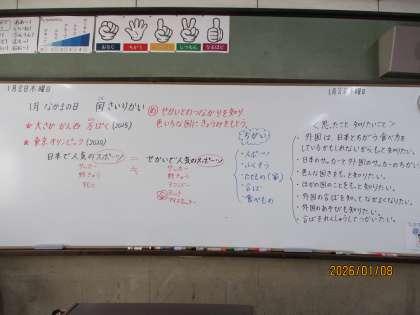 おなじ
ちがう
しつもん
なるほど
1月8日木曜日
1月8日木曜日
1月
国さいりかい
め せかいとのつながりを知り
色いろな国にきょうみをもとう。
★大さか かんさい万ぱく(2025)
★東京オリンピック(2020)
日本で人気のスポーツ
＝
せかいで人気のスポーツ
サッカー
野きゅう
サッカー
野きゅう
ちがい
・スポーツ
・ふくそう
・たてもの(家)
・言ば
・食べもの
＜思ったこと 知りたいこと＞
・外国は、日本とちがう食べ方を
しているかもしれないからもっと知りたい。
・日本のサッカーと外国のサッカーのちがい
・色んな国きをもっと知りたい。
・ほかの国のことをもっと知りたい。
・外国の言ばを知ってなかよくなりたい。
・外国のあそびも知りたい。
・言ばをれんしゅうしてつかいたい。
2026/01/08